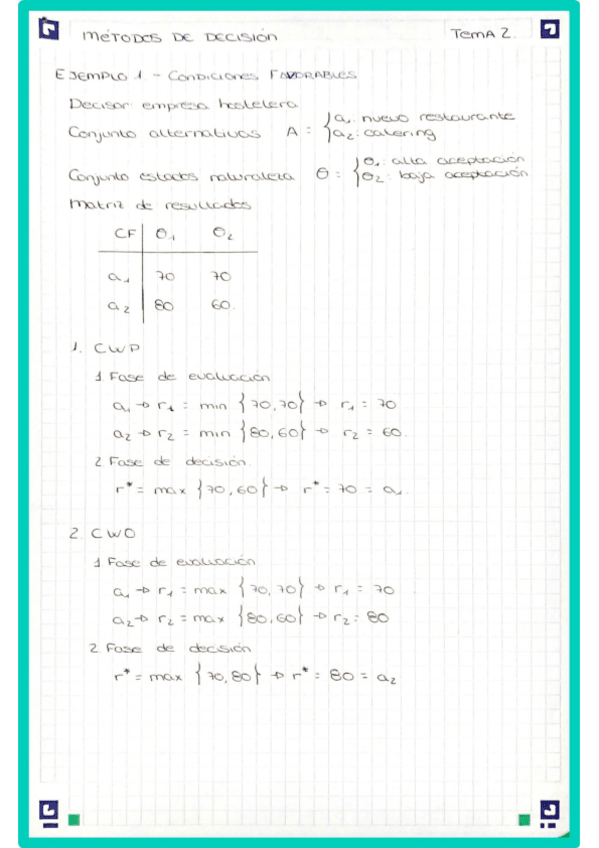 MÉTODOS DE DECISIÓN TEMA 2.
EJEMPLO 1 - CONDICIONES FAVORABLES
Decisor: empresa hostelera
Conjunto alternativas A = { a₁: nuevo restaurante
a₂: catering
Conjunto estados naturaleza Θ = { Θ₁: alta aceptación
Θ₂: baja aceptación
Matriz de resultados
CF Θ₁ Θ₂
a₁ 70 70
a₂ 80 60.
1. CWP
1 Fase de evaluación
a₁ → r₁ = min {70,70} → r₁ = 70
a₂ → r₂ = min {80,60} → r₂ = 60.
2 Fase de decisión.
r* = max {70,60} → r* = 70 = a₁.
2. CWO
1 Fase de evaluación
a₁ → r₁ = max {70,70} → r₁ = 70
a₂ → r₂ = max {80,60} → r₂ = 80
2 Fase de decisión
r* = max {70,80} → r* = 80 = a₂